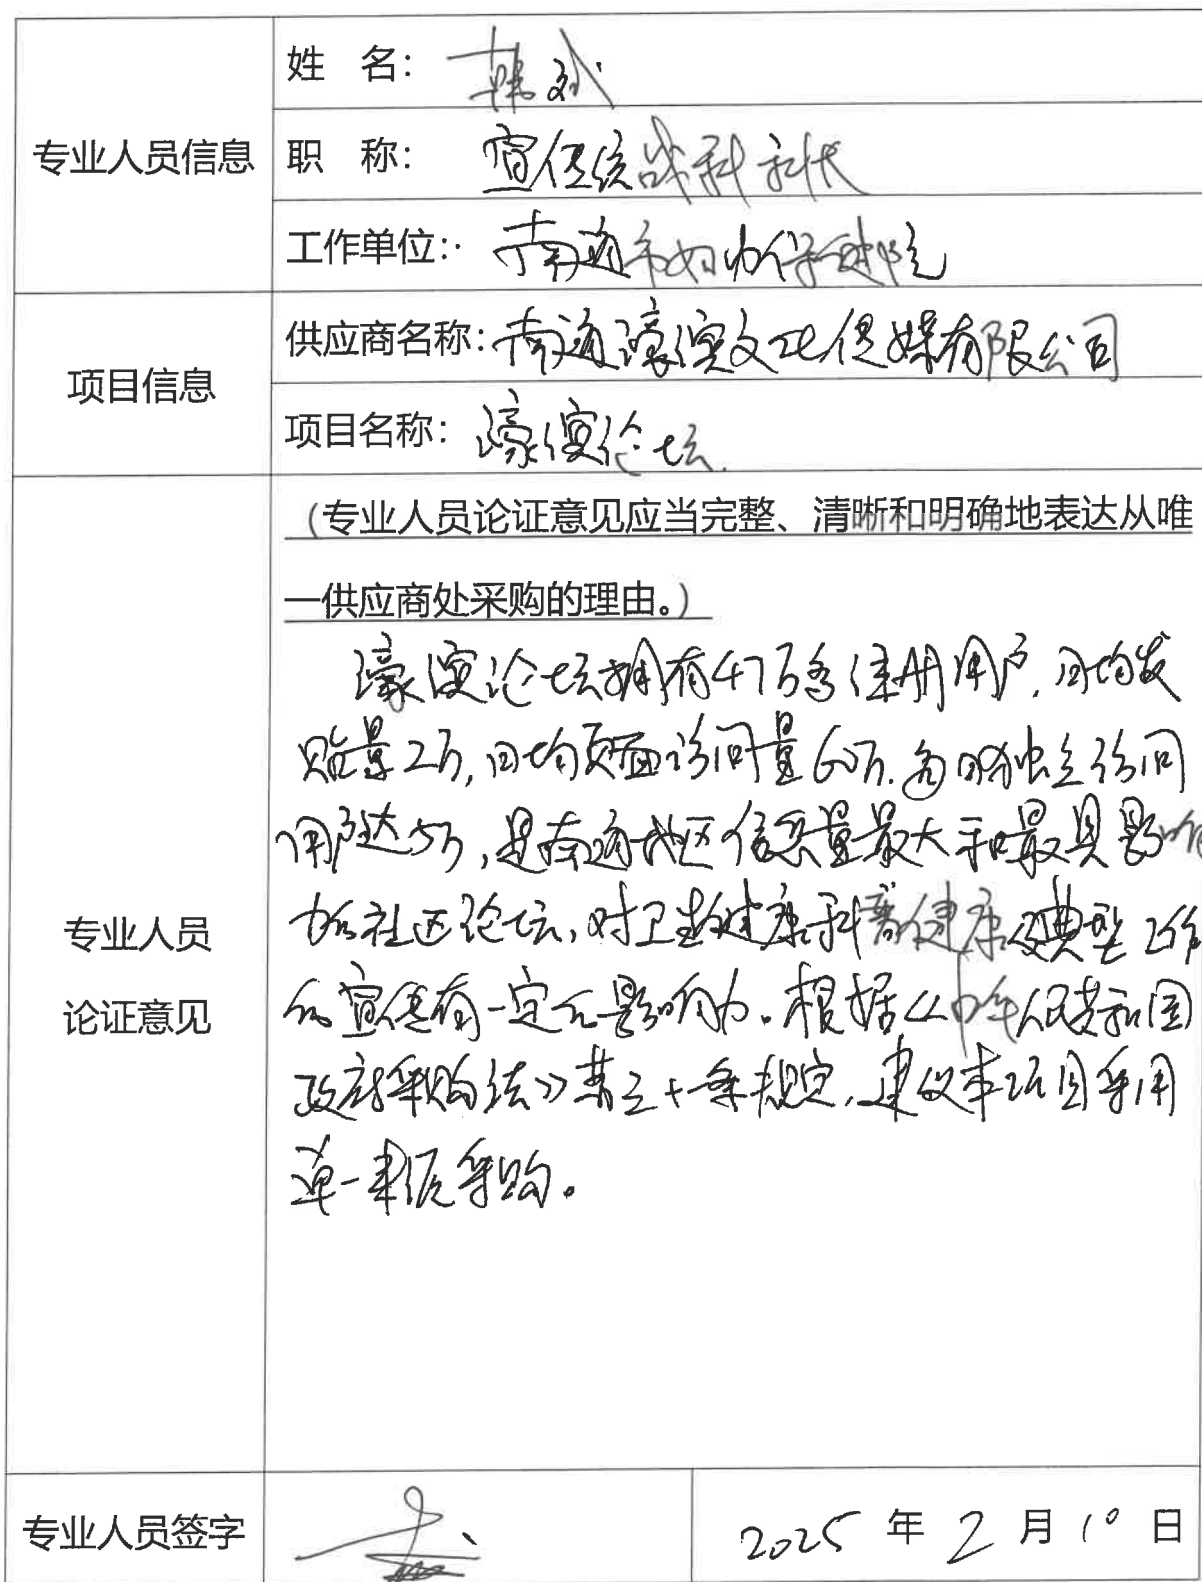 专业人员信息
姓 名：韩斌
职 称：宣传统战科科长
工作单位：南通市妇幼保健院
项目信息
供应商名称：南通濠滨文化传媒有限公司
项目名称：濠滨论坛
专业人员
论证意见
（专业人员论证意见应当完整、清晰和明确地表达从唯
一供应商处采购的理由。）
濠滨论坛拥有47万多注册用户，日均发
贴量2万，日均页面访问量60万，每日独立访问
用户达5万，是南通地区信息量最大和最具影响
力的社区论坛，对卫生健康科普健康及典型工作
的宣传有一定的影响力。根据《中华人民共和国
政府采购法》第三十一条规定，建议本项目采用
单一来源采购。
专业人员签字
2025 年 2 月 10 日